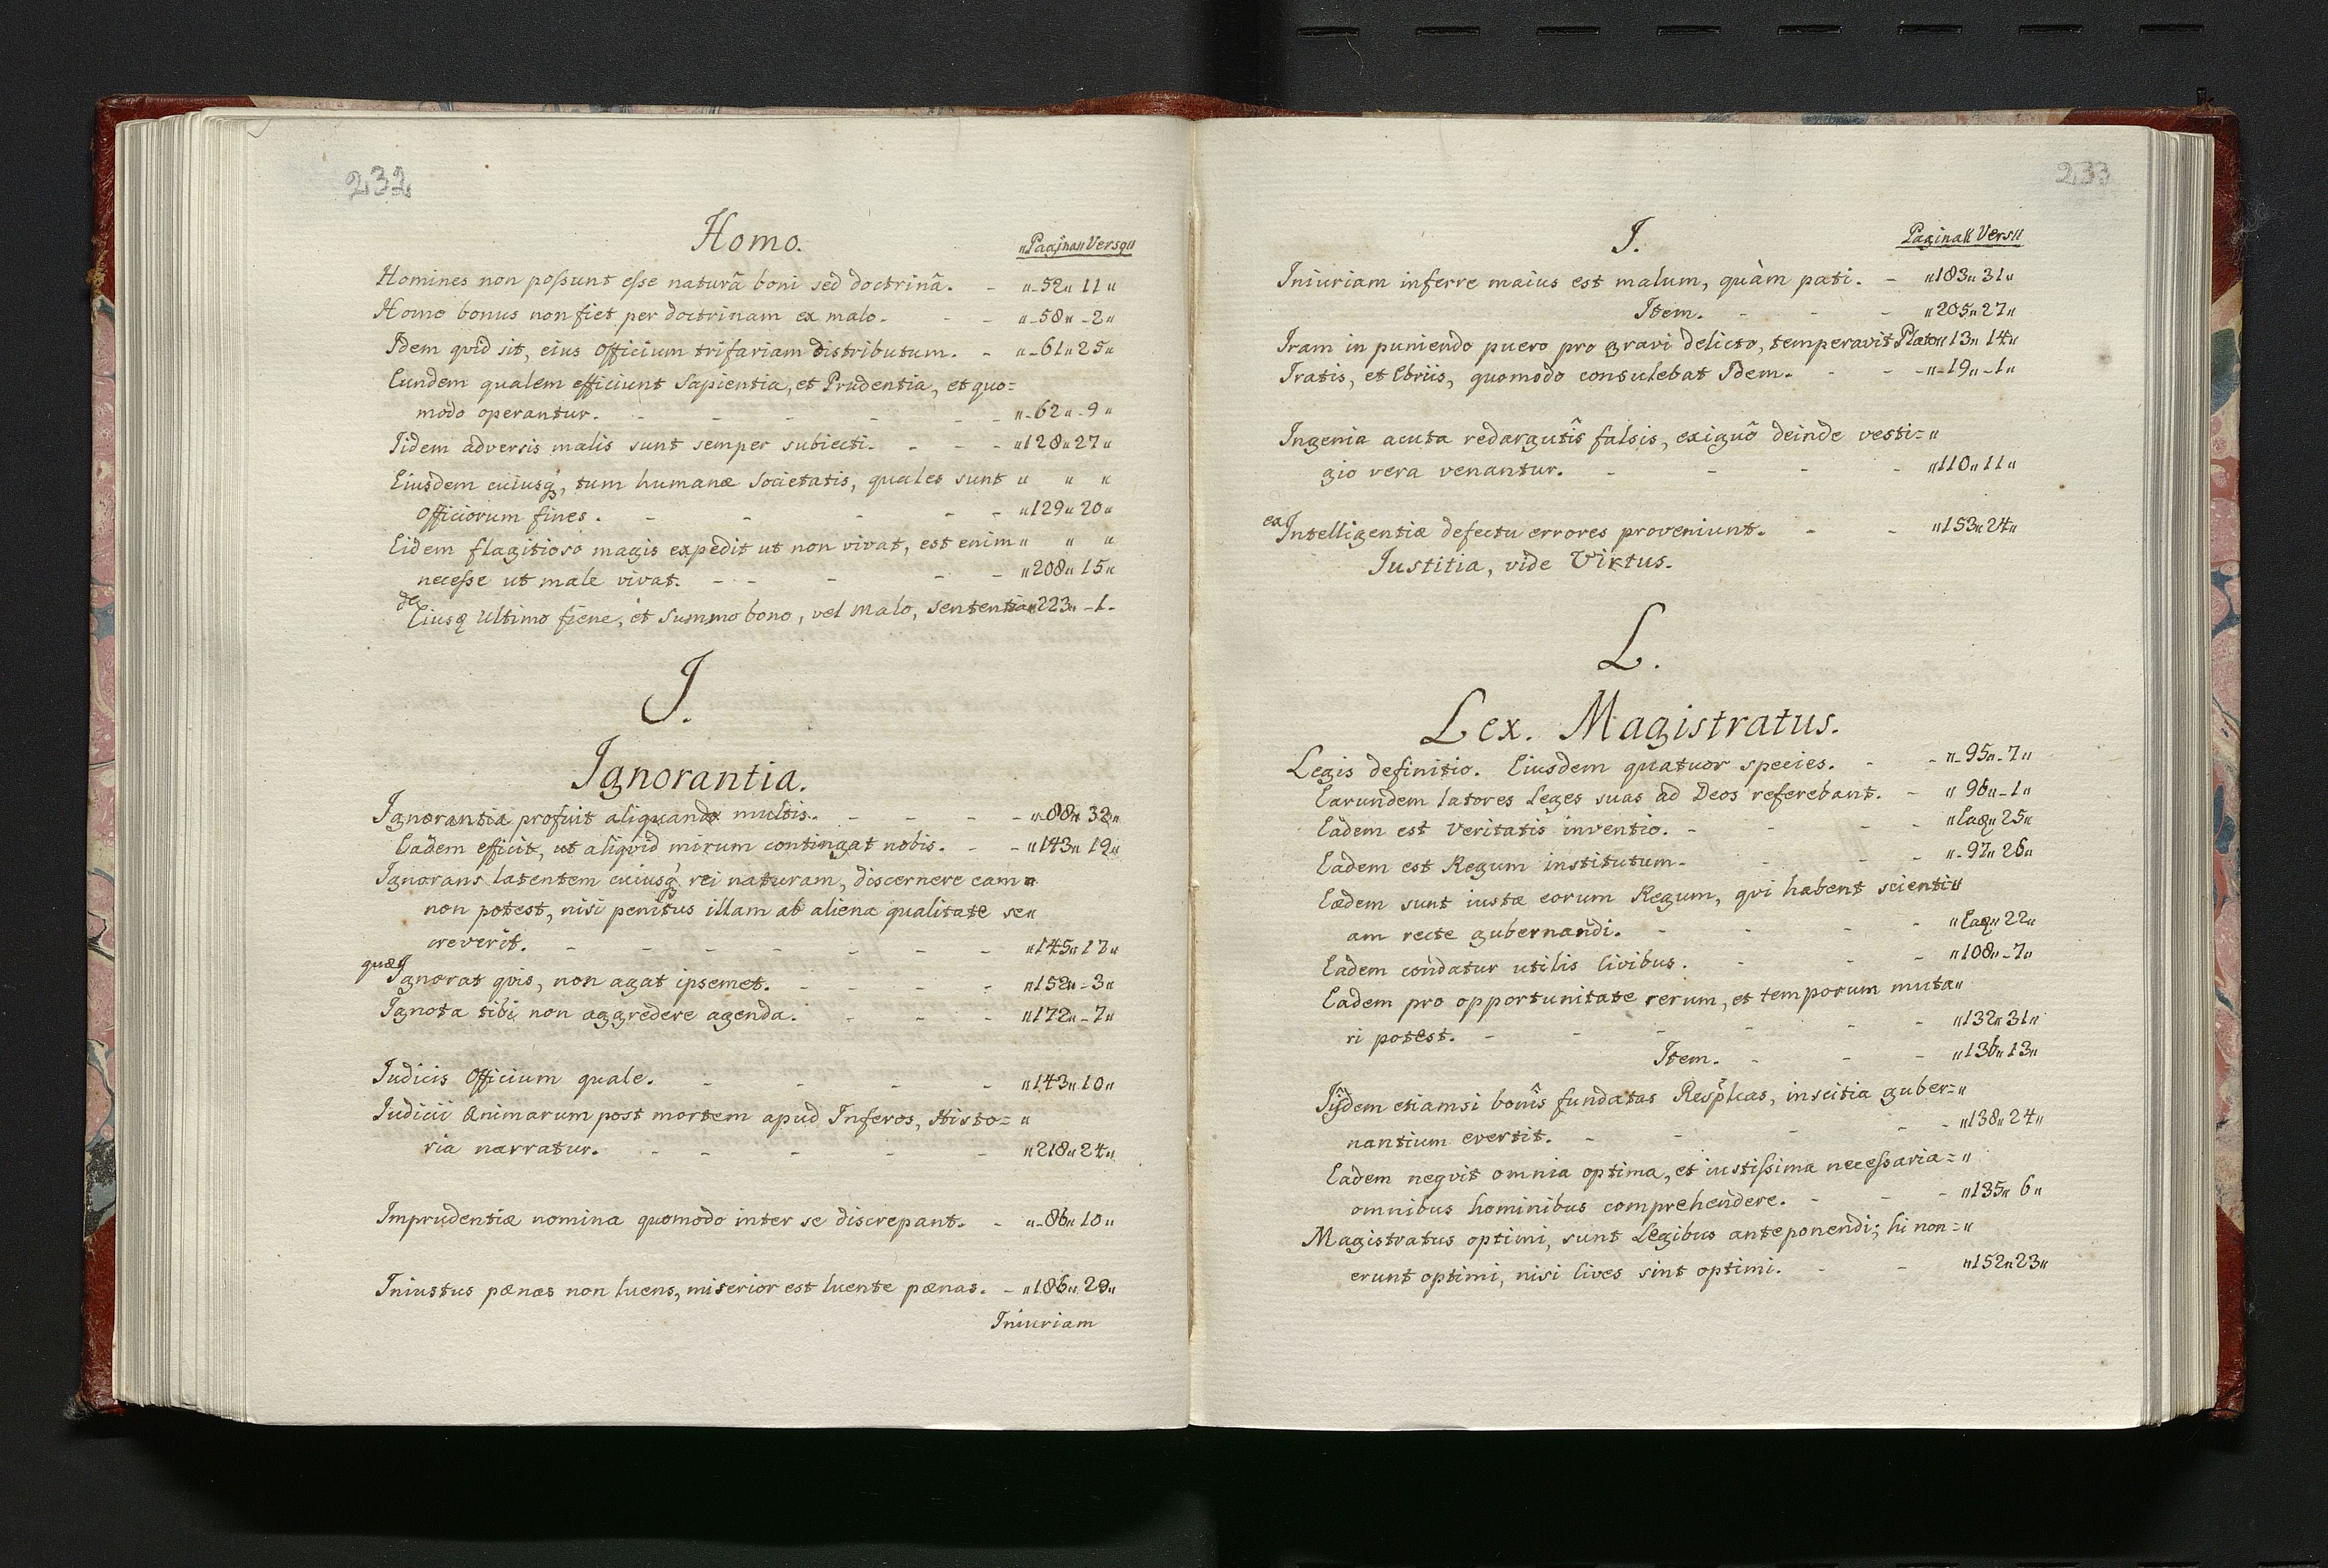 232
Homo. „Pagina„Versq„
Homines non poſsunt eſse naturâ boni sed doctrinâ. - „-52„11„
Homo bonus non fiet per doctrinam ex malo. - - „-58„-2„
Idem qvid sit, eius Officium trifariam distributum. - „-61„25„
Eundem qualem efficiunt Sapientia, et Prudentia, et quo=
modo operantur. - - - - - - „-62„-9„
Iidem adversis malis sunt semper subiecti. - - - „128„27„
Eiusdem cuiusq, tum humanæ Societatis, quales sunt „ „ „
Officiorum fines. - - - - - „129„20„
Eidem flagitioso magis expedit ut non vivat, est enim „ „ „
neceſse ut male vivat. - - - - - „208„15„
de Eiusq Ultimo fiene, et Summo bono, vel Malo, sententia„223„-1-
I.
Ignorantia.
Ignorantia profuit aliquando multis. - - - - - „-88„32„
Eadem efficit, ut aliqvid mirum contingat nobis. - - „143„19„
Ignorans latentem cuiusq rei naturam, discernere eam „
non potest, nisi penitus illam ab aliena qualitate se„
creverit. - - - - - - - „145„17„
quæ Ignorat qvis, non agat ipsemet. - - - - „152„-3„
Ignota tibi non aggredere agenda. - - - „172„-7„
Iudicis Officium quale. - - - - „143„10„
Iudicii Animarum post mortem apud Inferos, Histo= „
ria narratur. - - - - - „218„24„
Imprudentiæ nomina quomodo inter se discrepant. - „-86„10„
Iniustus pænas non luens, miserior est luente pænas. - „186„29„
Iniuriam
233
I. Pagina„Vers„
Iniuriam inferre maius est malum, quàm pati. - „183„31„
Item. - - - „205„27„
Iram in puniendo puero pro gravi delicto, temperavit Plato„13„14„
Iratis, et Ebriis, quomodo consulebat Idem. - - -„-19„-1„
Ingenia acuta redargutîs falsis, exiguô deinde vesti= „
gio vera venantur. - - - - „110„11„
ex Intelligentiæ defectu errores proveniunt. - - „153„24„
Iustitia, vide Virtus.
L.
Lex. Magistratus.
Legis definitio. Eiusdem quatuor species. - - „-95„-7„
Earundem latores Leges suas ad Deos referebant. - „96„-1„
Eadem est Veritatis inventio. - - - - „Eaq„25„
Eadem est Regum institutum. - - - „-97„26„
Eædem sunt iustæ eorum Regum, qvi habent scienti„
am recte gubernandi. - - - - „Eaq„22„
Eadem condatur utilis Civibus. - - - „108„-7„
Eadem pro opportunitate rerum, et temporum muta„
ri potest. - - - - - - „132„31„
Item. - - - „136„13„
Iijdem etiamsi bonîs fundatas Resplcas, inscitia guber= „
nantium evertit. - - - - - „138„24„
Eadem neqvit omnia optima, et iustiſsima neceſsaria= „
omnibus hominibus comprehendere. - - - „135„6„
Magistratus optimi, sunt Legibus anteponendi; hi non= „
erunt optimi, nisi Cives sint optimi. - - „152„23„